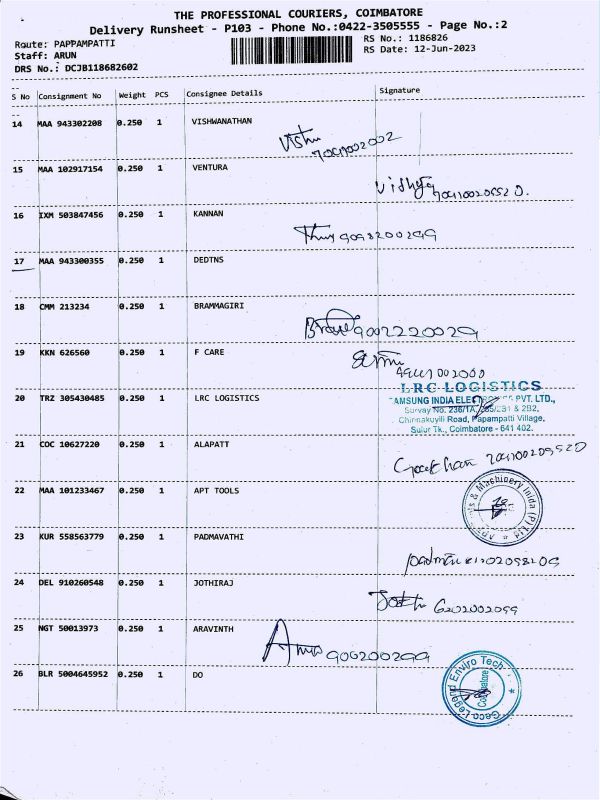 THE PROFESSIONAL COURIERS, COIMBATORE
Delivery Runsheet - P103 - Phone No.:0422-3505555 - Page No.:2
Route: PAPPAMPATTI
RS No.: 1186826
Staff: ARUN
RS Date: 12-Jun-2023
DRS No.: DCJB118682602
S No Consignment No Weight PCS Consignee Details Signature
14 MAA 943302208 0.250 1 VISHWANATHAN
15 MAA 102917154 0.250 1 VENTURA
16 IXM 503847456 0.250 1 KANNAN
17 MAA 943300355 0.250 1 DEDTNS
18 CMM 213234 0.250 1 BRAMMAGIRI
19 KKN 626560 0.250 1 F CARE
20 TRZ 305430485 0.250 1 LRC LOGISTICS
LRC LOGISTICS
AMSUNG INDIA ELECTRONICS PVT. LTD.,
Survey No. 236/1A, & 2B2,
Chinnakuyili Road, Papampatti Village,
Sulur Tk., Coimbatore - 641 402.
21 COC 10627220 0.250 1 ALAPATT
22 MAA 101233467 0.250 1 APT TOOLS
& Machinery Inida (P) Ltd
23 KUR 558563779 0.250 1 PADMAVATHI
24 DEL 910260548 0.250 1 JOTHIRAJ
25 NGT 50013973 0.250 1 ARAVINTH
26 BLR 5004645952 0.250 1 DO
Enviro Tech
Coimbatore